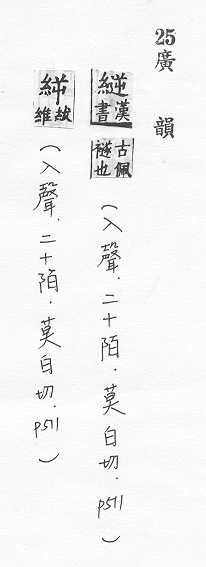 25廣韻
縌漢書古佩襚也(入聲.二十陌.莫白切.p511)
故維(入聲.二十陌.莫白切.p511)